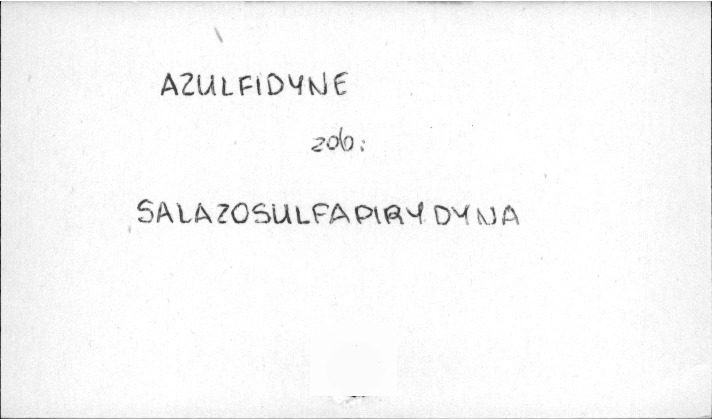 AZULFIDYNE
zob:
SALAZOSULFAPIRYDYNA